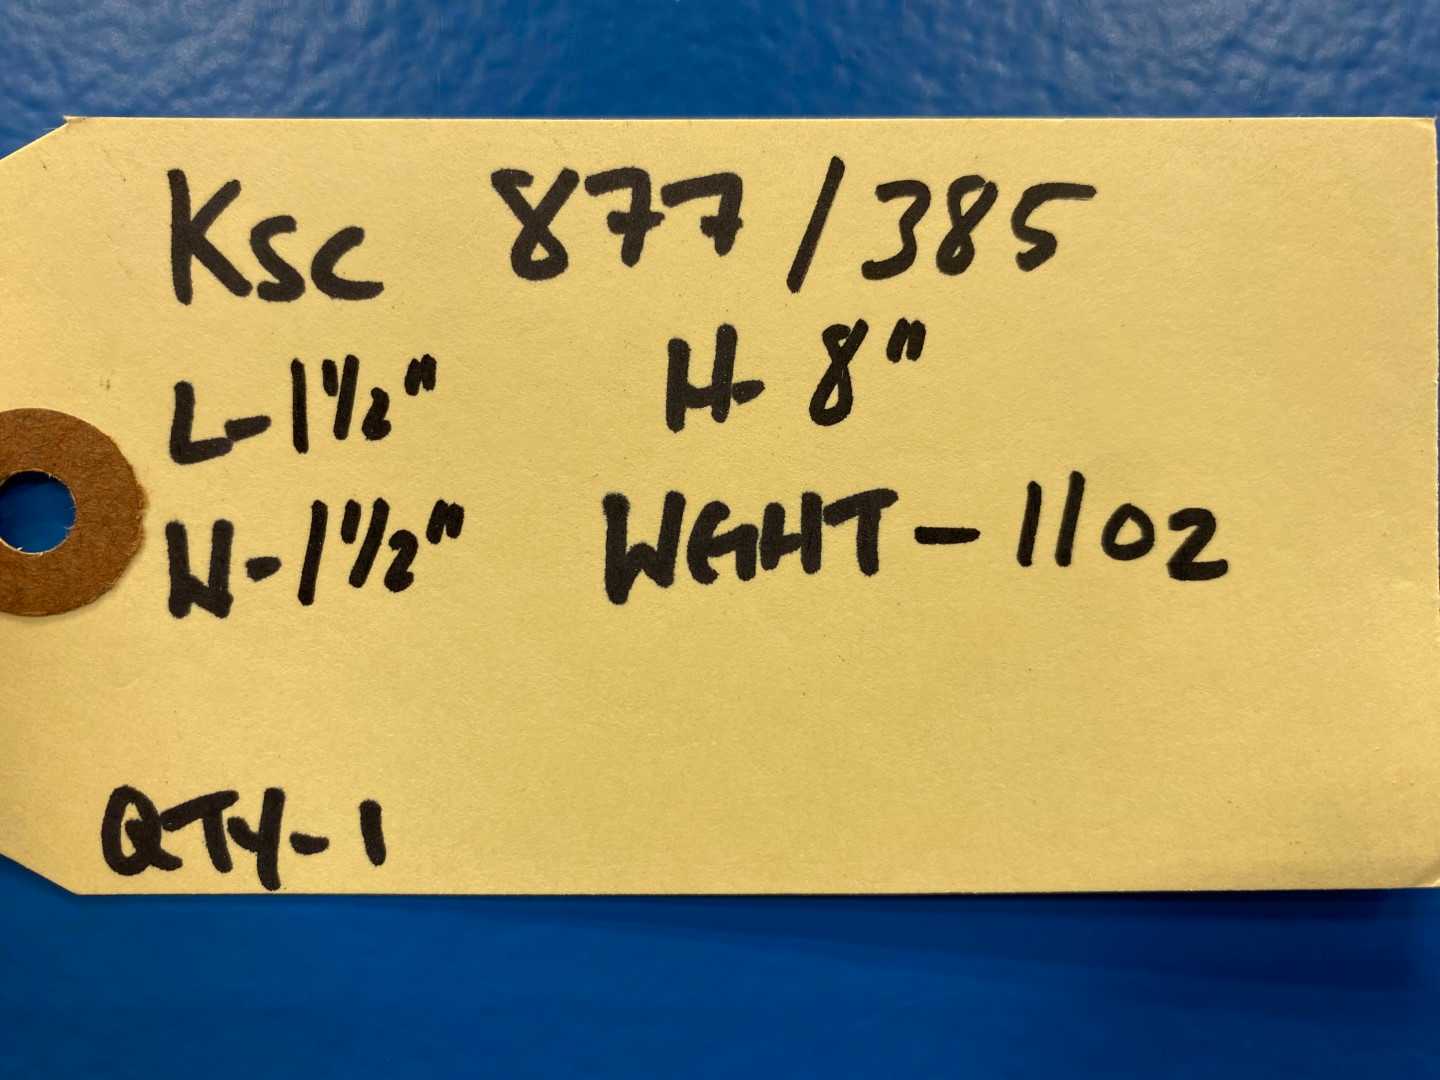 KSC 877/385
L-1 1/2" H-8"
W-1 1/2" WGHT-11OZ
QTY-1